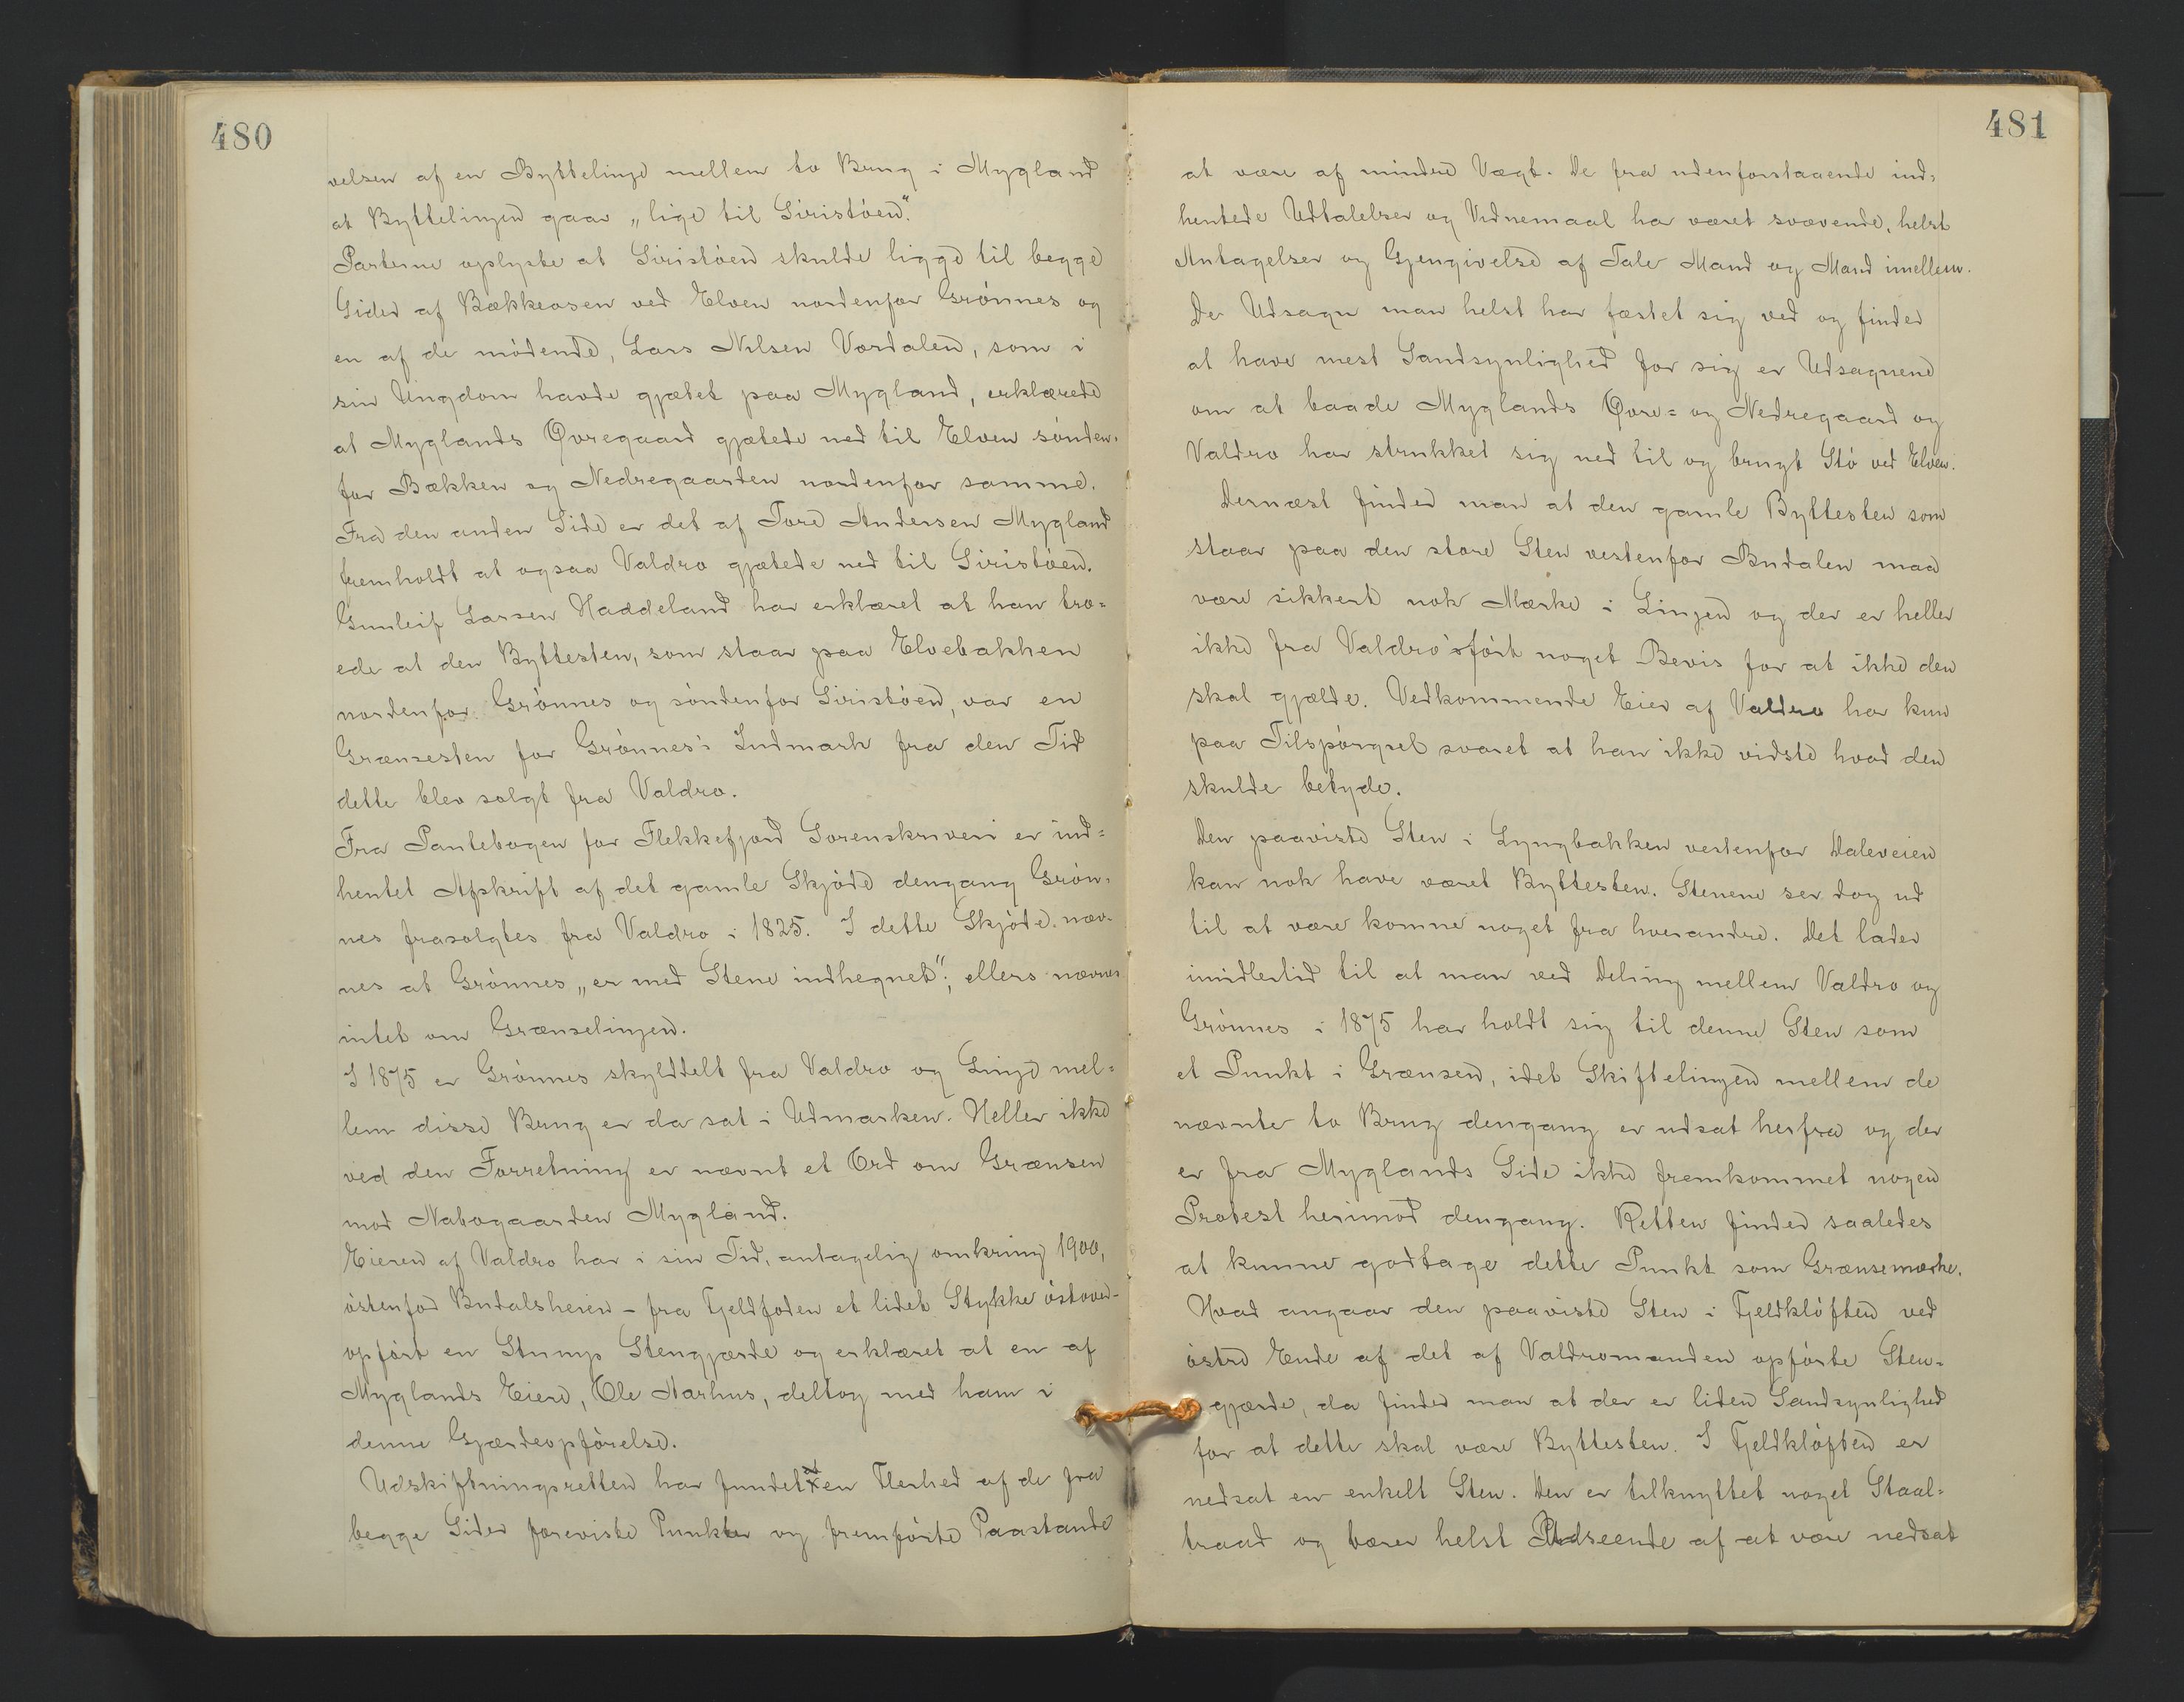 480
velsen af en Byttelinje mellem to Brug i Mygland
at Byttelinjen gaar „lige til Siristöen“.
Parterne oplyste at Siristöen skulde ligge til begge
Sider af Bækkeosen ved Elven nordenfor Grönnes og
en af de mödende, Lars Nilsen Vordalen, som i
sin Ungdom havde gjætet paa Mygland, erklærede
at Myglands Øvregaard gjætede ned til Elven sönden-
for Bækken og Nedregaarden nordenfor samme.
Fra den anden Side er det af Tore Andersen Mygland
fremholdt at ogsaa Valdro gjætede ned til Siristöen.
Gunleif Larsen Haddeland har erklæret at han tro=
ede at den Byttesten, som staar paa Elvebakken
nordenfor Grönnes og söndenfor Siristöen, var en
Grænsesten for Grönnes's Indmark fra den Tid
dette blev solgt fra Valdro.
Fra Pantebogen for Flekkefjord Sorenskriveri er ind=
hentet Afskrift af det gamle Skjöde dengang Grön-
nes frasolgtes fra Valdro i 1825. I dette Skjöde næv-
nes at Grönnes „er med Stene indhegnet“; ellers nævnes
intet om Grænselinjen.
I 1875 er Grönnes skylddelt fra Valdro og Linje mel=
lem disse Brug er da sat i Udmarken. Heller ikke
ved den Forretning er nævnt et Ord om Grænsen
mod Nabogaarden Mygland.
Eieren af Valdro har i sin Tid, antagelig omkring 1900,
östenfor Budalsheien - fra Fjeldfoden et lidet Stykke östover -
opfört en Stump Stengjærde og erklæret at en af
Myglands Eiere, Ole Aarhus, deltog med ham i
denne Gjærdeopförelse.
Udskiftningsretten har fundet en Flerhed af de fra
begge Sider foreviste Punkter og fremförte Paastande
481
at være af mindre Vægt. De fra udenforstaaende ind=
hentede Udtalelser og Vidnemaal har været svævende, helst
Antagelser og Gjengivelse af Tale Mand og Mand imellem.
De Udsagn man helst har fæstet sig ved og finder
at have mest Sandsynlighed for sig er Udsagnene
om at baade Myglands Øvre= og Nedregaard og
Valdro har strukket sig ned til og brugt Stö ved Elven.
Dernæst finder man at den gamle Byttesten som
staar paa den store Sten vestenfor Budalen maa
være sikkert nok Mærke i Linjen og der er heller
ikke fra Valdro's fört noget Bevis for at ikke den
skal gjælde. Vedkommende Eier af Valdro har kun
paa Tilspörgsel svaret at han ikke vidste hvad den
skulde betyde.
Den paaviste Sten i Lyngbakken vestenfor Daleveien
kan nok have været Byttesten. Stenene ser dog ud
til at være komne noget fra hverandre. Det lader
imidlertid til at man ved Deling mellem Valdro og
Grönnes i 1875 har holdt sig til denne Sten som
et Punkt i Grænsen, idet Skiftelinjen mellem de
nævnte to Brug dengang er udsat herfra og der
er fra Myglands Side ikke fremkommet nogen
Protest herimod dengang. Retten finder saaledes
at kunne godtage dette Punkt som Grænsemærke.
Hvad angaar den paaviste Sten i Fjeldklöften ved
östre Ende af det af Valdromanden opförte Sten-
gjærde, da finder man at der er liden Sandsynlighed
for at dette skal være Byttesten. I Fjeldklöften er
nedsat en enkelt Sten. Den er tilknyttet noget Staal=
traad og bærer helst Udseende af at være nedsat